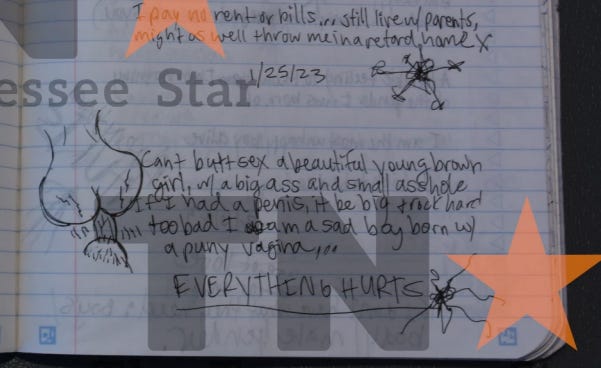 I pay no rent or bills... still live w/ parents,
might as well throw me in a retard home X
1/25/23
essee Star
Cant buttsex a beautiful young brown
girl, w/ a big ass and small asshole
If I had a penis, it be big + rock hard
too bad I am a sad boy born w/
a puny vagina...
EVERYTHING HURTS
TN